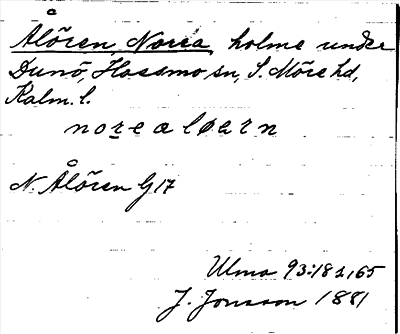 Å
Ålören, Norra, holme under
Dunö, Hossmo sn, S. Möre hd,
Kalm. l.
norealøærn
N. Ålören G17
Ulma 93:182,165
J. Jonsson 1881